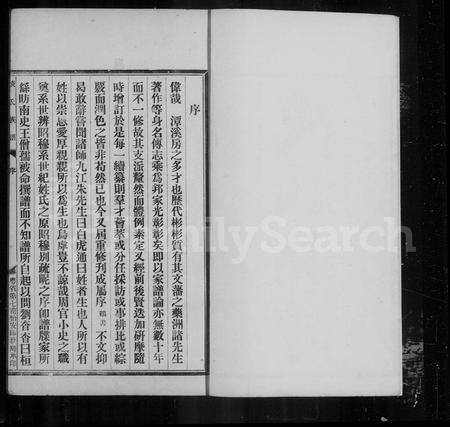 序
偉哉　潭溪房之多才也歷代彬彬質有其文藩之藥洲諸先生
著作等身名傳志乘爲邦家光彰彰矣即以家譜論亦無數十年
而不一修故其支派釐然而體例秦定又經前後賢迭加研摩隨
時增訂於是每一續纂則羣才薈萃或分任採訪或事排比或綜
覈而潤色之皆非苟然已也今又屆重修刊成屬序　不文抑
曷敢辭嘗聞諸師九江朱先生曰白虎通曰姓者生也人所以有
姓以崇恩愛厚親親所以爲生也烏虖豈不諒哉周官小史之職
奠系世辨昭穆系世紀姓氏之原昭穆別疏昵之序即譜牒家所
繇昉南史王僧孺被命撰譜而不知譜所自起以問劉杳杳曰桓
氏族譜　序
FamilySearch